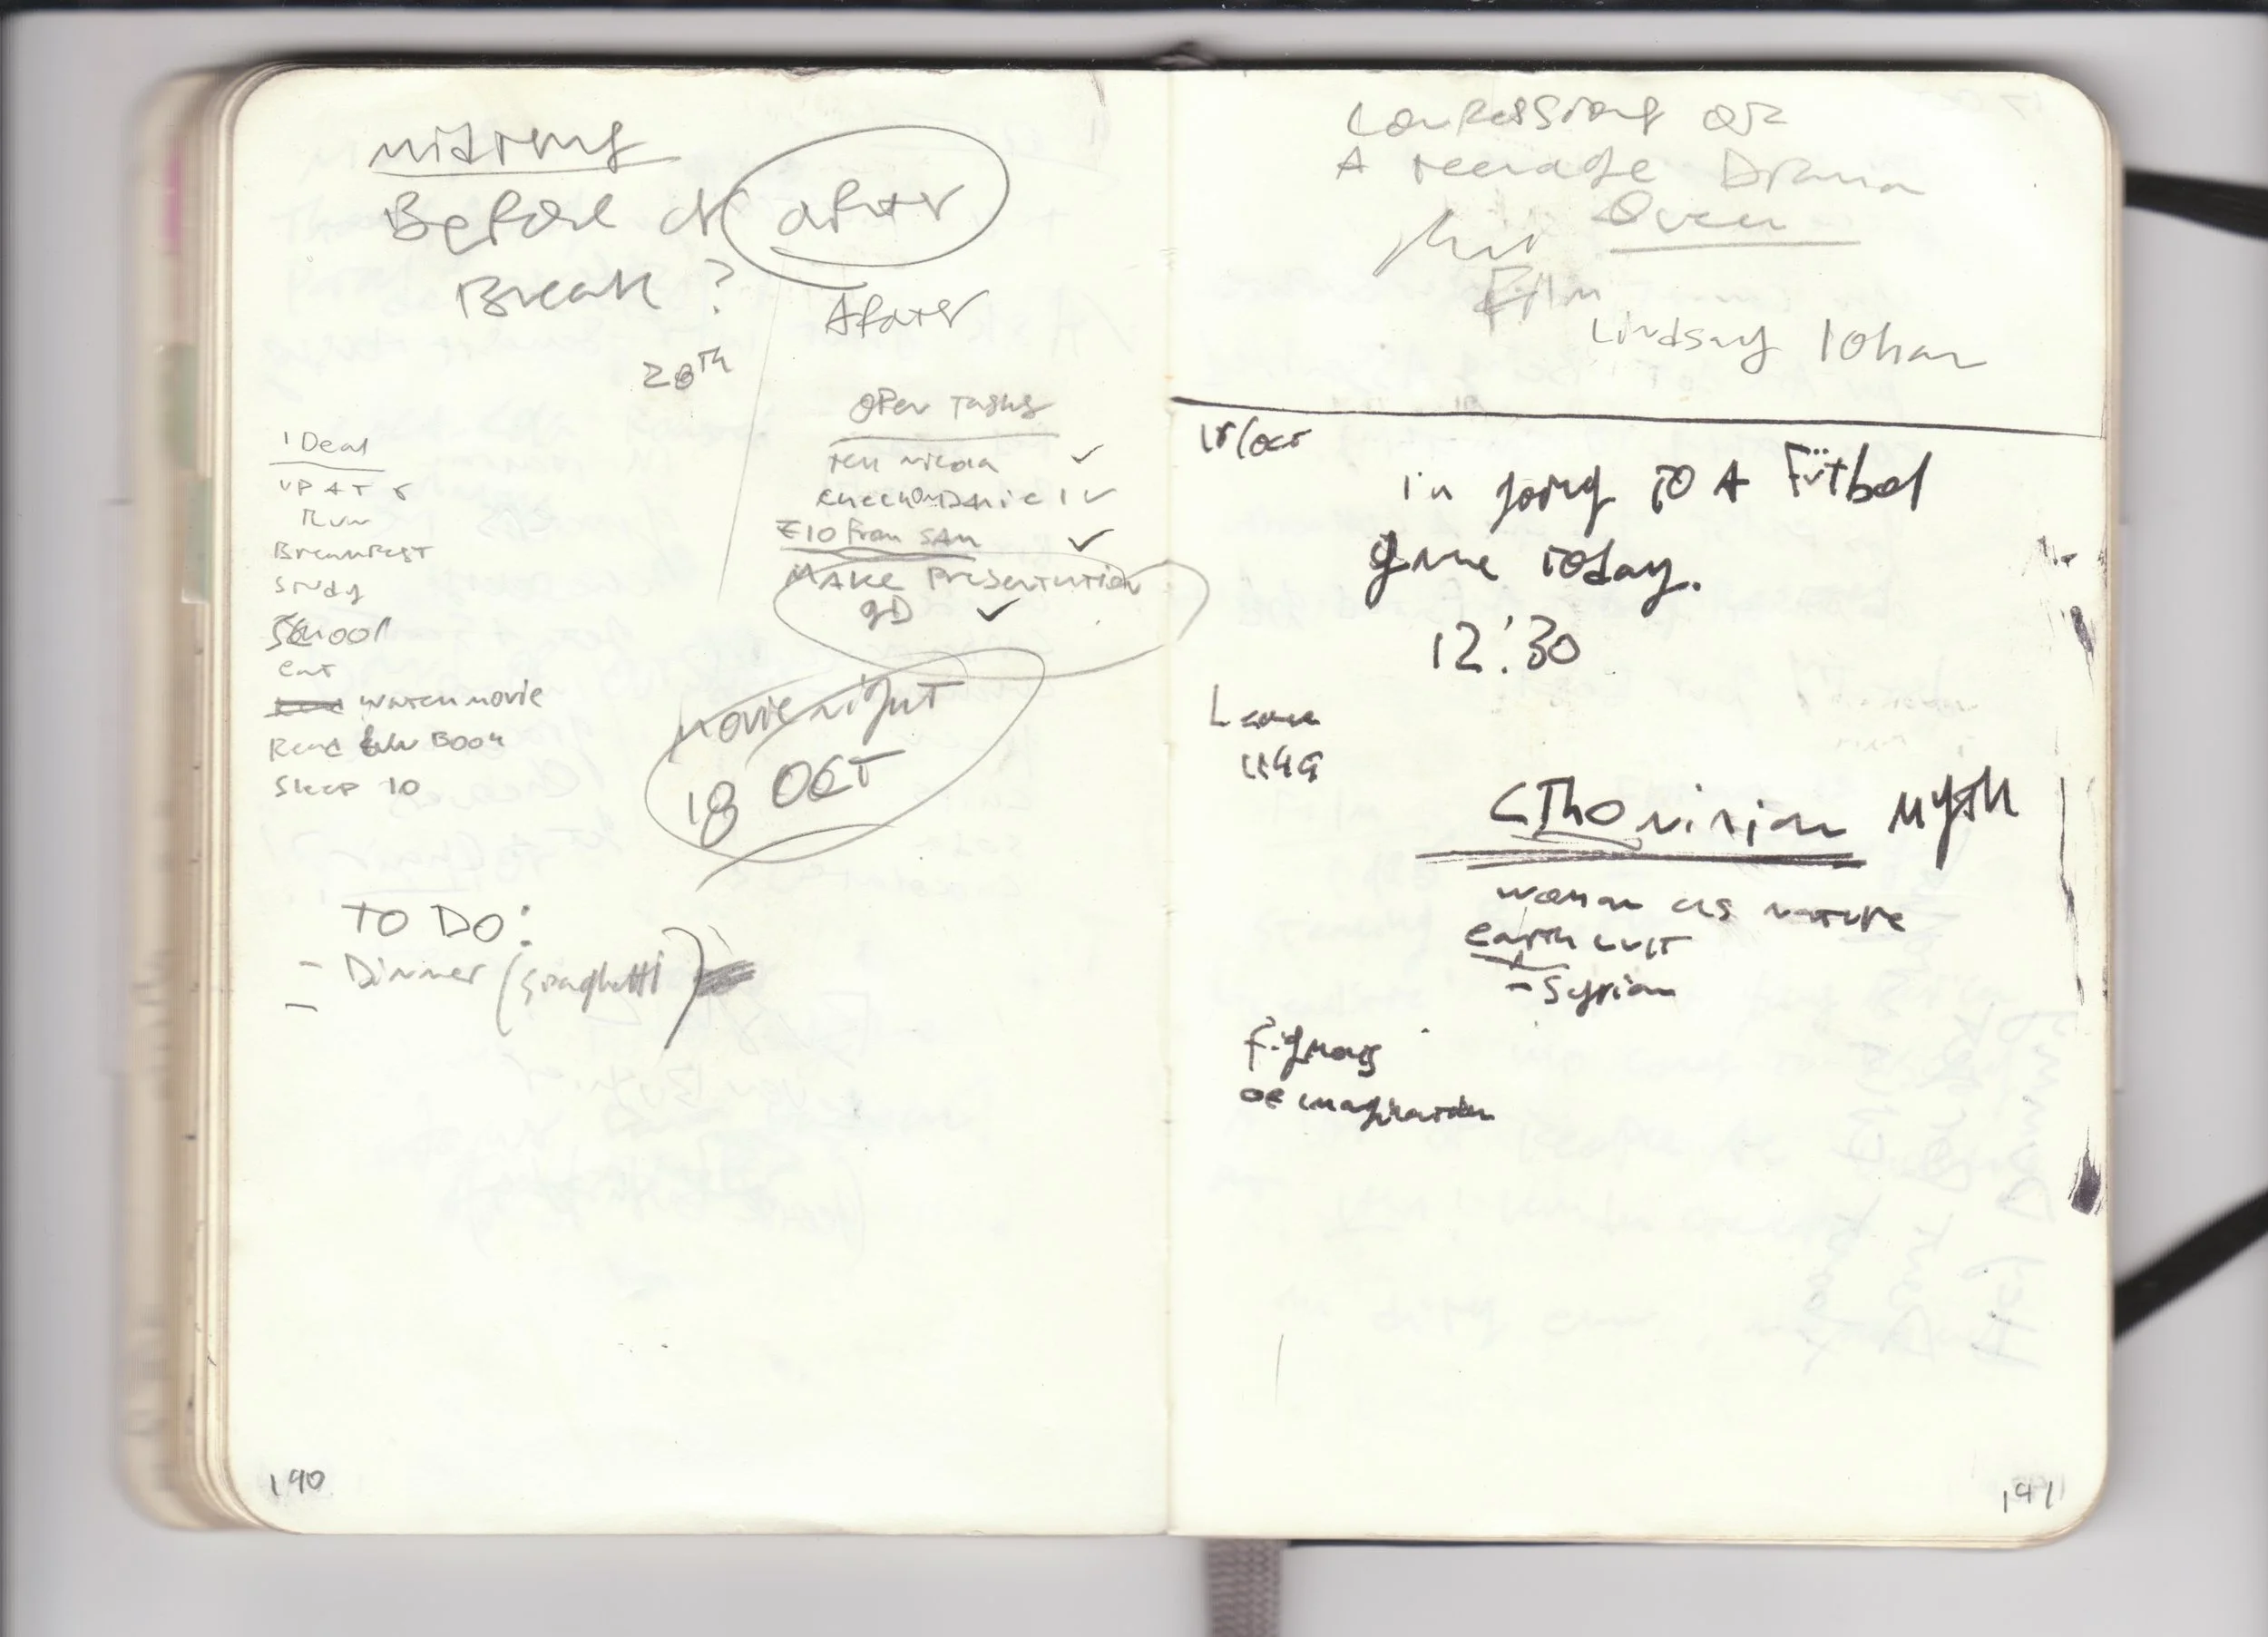 midterms
Before or after
Break?
After
20th
IDeal
UP AT 8
Run
BreakFast
Study
School
eat
watch movie
Read Book
Sleep 10
open Tasks
Tell nicola ✓
✓
€10 From SAM ✓
MAKE Presentation
gD ✓
movie night
18 OCT
TO DO:
- Dinner (Spaghetti)
-
190
Confessions of
A teenage Drama
Queen
Film
Lindsay lohan
18/oct
im going TO A Fütbol
game today.
12:30
Leave
Cthoninian Myth
woman as nature
earth cult
- Syrian
Figments
of imagination
191